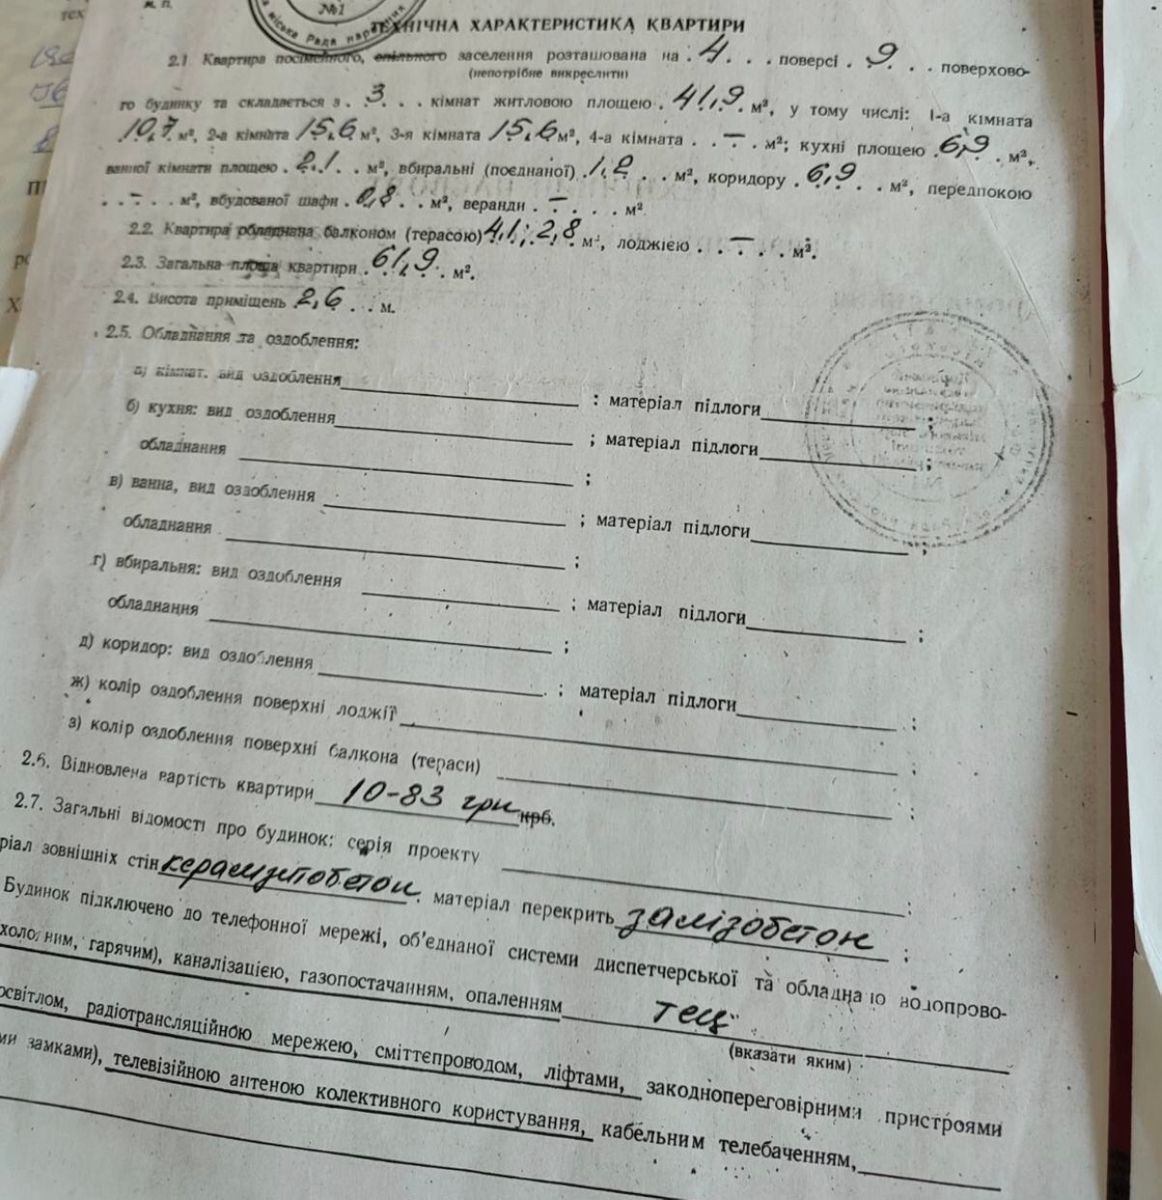 тех
м. п.
№1
міська Рада народних
ТЕХНІЧНА ХАРАКТЕРИСТИКА КВАРТИРИ
2.1 Квартира посімейного, спільного заселення розташована на . 4 . . . поверсі . 9 . . . поверхово-
(непотрібне викреслити)
го будинку та складається з . 3 . . . кімнат житловою площею . 41,9 . м², у тому числі: 1-а кімната
10,7 м², 2-а кімната 15,6 м², 3-я кімната 15,6 м², 4-а кімната . . – . . м²; кухні площею . 6,9 . м²,
ванної кімнати площею . 2,1 . . м², вбиральні (поєднаної) . 1,2 . . . м², коридору . 6,9 . . м², передпокою
. . – . . м², вбудованої шафи . 0,8 . . м², веранди . – . . . м²
2.2. Квартира обладнана балконом (терасою) 4,1; 2,8 м², лоджією . . – . . . м².
2.3. Загальна площа квартири . 61,9 . м².
2.4. Висота приміщень 2,6 . . м.
2.5. Обладнання та оздоблення:
а) кімнат. вид оздоблення : матеріал підлоги ;
б) кухня: вид оздоблення ; матеріал підлоги ;
обладнання ;
в) ванна, вид оздоблення ; матеріал підлоги ;
обладнання ;
г) вбиральня: вид оздоблення ; матеріал підлоги ;
обладнання ;
д) коридор: вид оздоблення ; матеріал підлоги ;
ж) колір оздоблення поверхні лоджії ;
з) колір оздоблення поверхні балкона (тераси) ;
2.6. Відновлена вартість квартири 10-83 грн крб.
2.7. Загальні відомості про будинок: серія проекту ;
ріал зовнішніх стін керамзитобетон, матеріал перекрить залізобетон ;
Будинок підключено до телефонної мережі, об'єднаної системи диспетчерської та обладнано водопрово-
холодним, гарячим), каналізацією, газопостачанням, опаленням ТЕЦ
(вказати яким)
освітлом, радіотрансляційною мережею, сміттєпроводом, ліфтами, закоднопереговірними пристроями
ми замками), телевізійною антеною колективного користування, кабельним телебаченням,